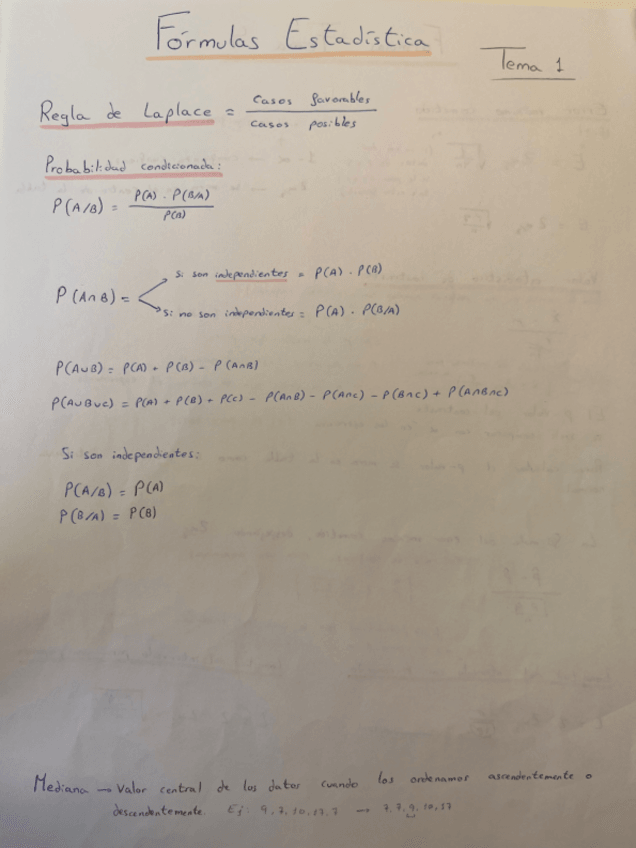 Fórmulas Estadística
Tema 1
Regla de Laplace = casos favorables / casos posibles
Probabilidad condicionada:
P(A/B) = P(A) · P(B/A) / P(B)
Si son independientes = P(A) · P(B)
P(A∩B) =
Si no son independientes = P(A) · P(B/A)
P(A∪B) = P(A) + P(B) - P(A∩B)
P(A∪B∪C) = P(A) + P(B) + P(C) - P(A∩B) - P(A∩C) - P(B∩C) + P(A∩B∩C)
Si son independientes:
P(A/B) = P(A)
P(B/A) = P(B)
Mediana → Valor central de los datos cuando los ordenamos ascendentemente o
descendentemente. Ej: 9,7,10,17,7 → 7,7,9,10,17